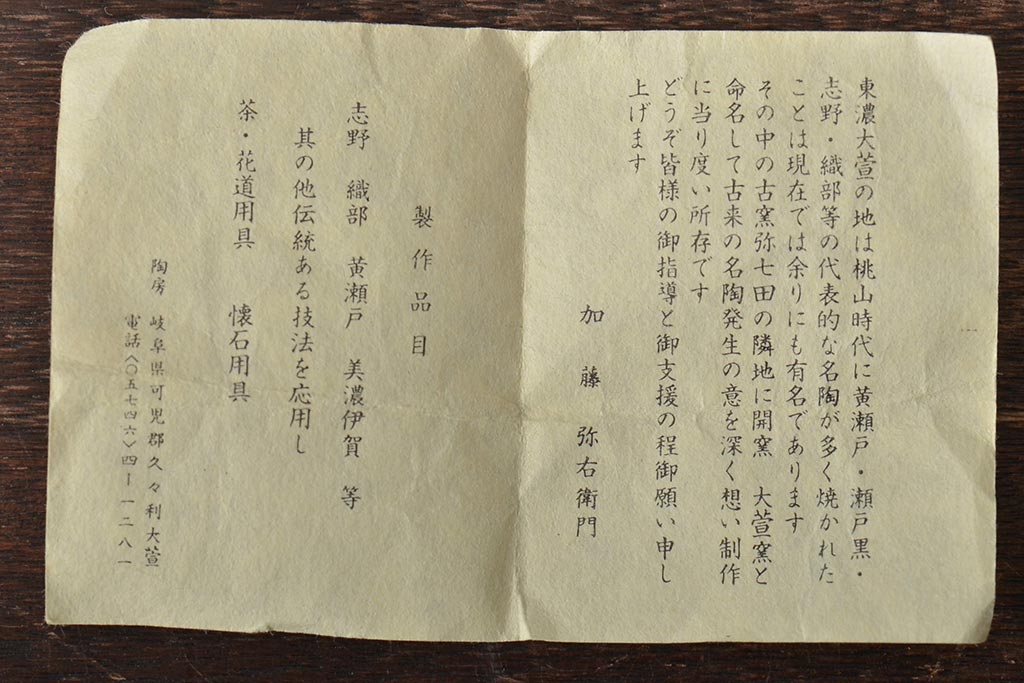 東濃大萱の地は桃山時代に黄瀬戸・瀬戸黒・
志野・織部等の代表的な名陶が多く焼かれた
ことは現在では余りにも有名であります
その中の古窯弥七田の隣地に開窯　大萱窯と
命名して古来の名陶発生の意を深く想い制作
に当り度い所存です
どうぞ皆様の御指導と御支援の程御願い申し
上げます
加藤弥右衛門
製作品目
志野　織部　黄瀬戸　美濃伊賀　等
其の他伝統ある技法を応用し
茶・花道用具　懐石用具
陶房　岐阜県可児郡久々利大萱
電話〈〇五七四六〉四ー一二八一